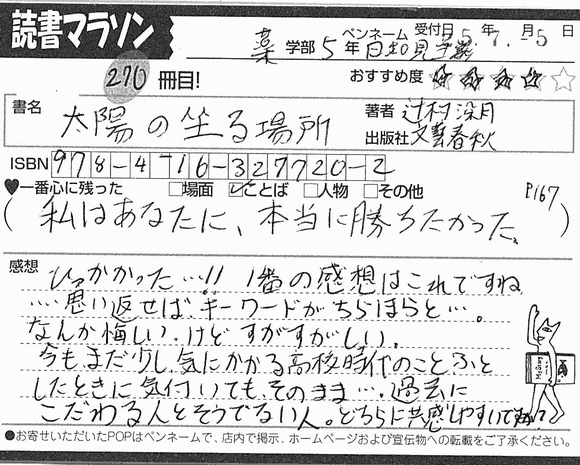 読書マラソン
ペンネーム 受付日 5年7月-5日
薬 学部 5年
270 冊目! おすすめ度 ★★★★☆
書名 太陽の坐る場所 著者 辻村深月
出版社 文藝春秋
ISBN 978-4-16-327720-2
♥一番心に残った □場面 ☑ことば □人物 □その他 P167
(私はあなたに、本当に勝ちたかった。)
感想 ひっかかった…!! 1番の感想はこれですね
…思い返せば、キーワードがちらほらと…。
なんか悔しい、けど すがすがしい。
今もまだ少し気にかかる高校時代のこと ふと
したときに気付いても、そのまま…。過去に
こだわる人とそうでない人。どちらに共感しやすいですか?
●お寄せいただいたPOPはペンネームで、店内で掲示、ホームページおよび宣伝物への転載をご了承ください。